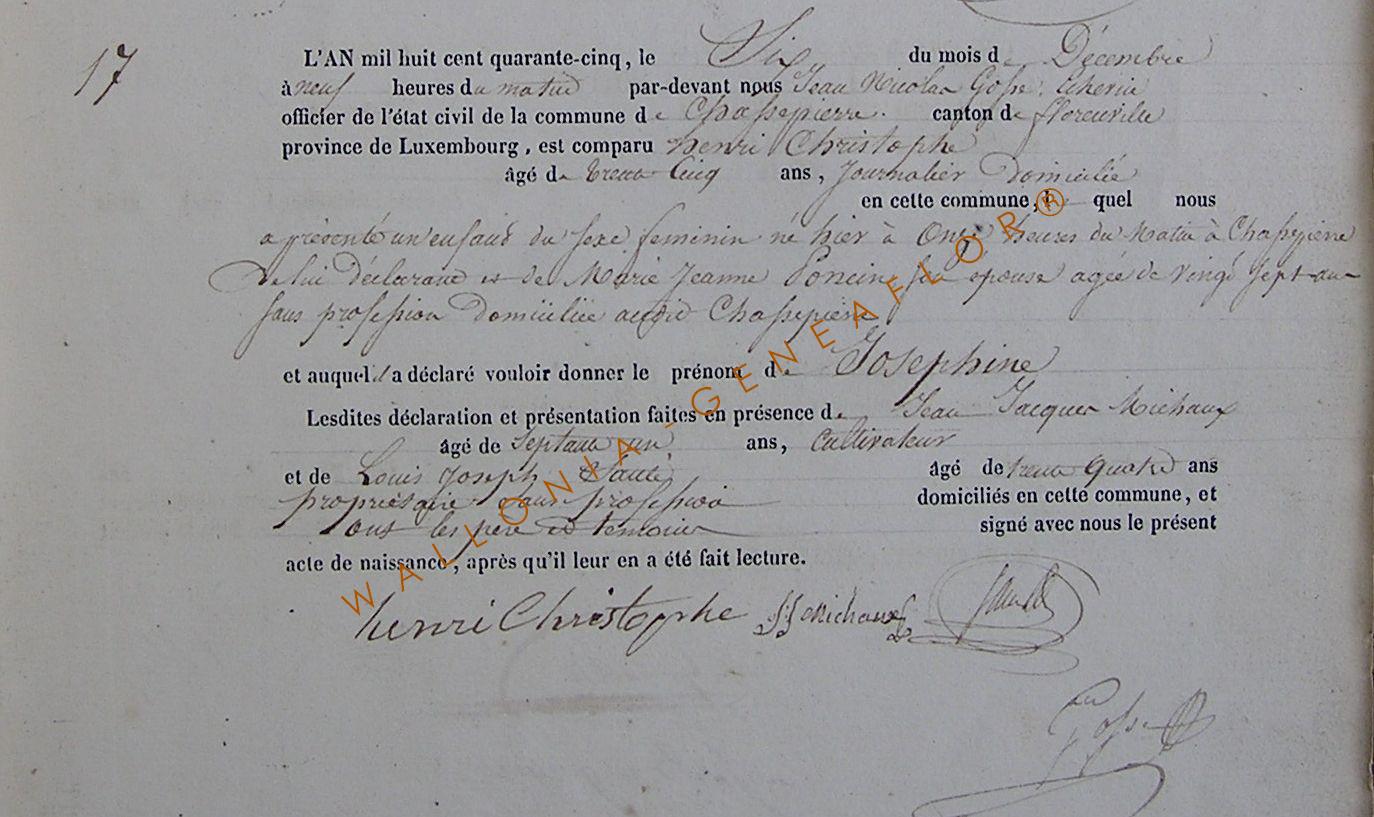 17
L'AN mil huit cent quarante-cinq, le Six du mois de Décembre
à neuf heures du matin par-devant nous Jean Nicolas Gosse, Echevin
officier de l'état civil de la commune de Chassepierre. canton de florenville
province de Luxembourg, est comparu henri Christophe
âgé de trente Cinq ans, Journalier Domicilié
en cette commune, le quel nous
a présenté un enfant du sexe feminin né hier à Onze heures du Matin à Chassepierre
de lui Déclarant et de Marie Jeanne Poncin son epouse agée de vingt Sept ans
sans profession Domiciliée audit Chassepierre
et auquel il a déclaré vouloir donner le prénom de Josephine
Lesdites déclaration et présentation faites en présence de Jean Jacques Michaux
âgé de Septante un ans, Cultivateur
et de Louis Joseph âgé de trente Quatre ans
propriétaire sans profession domiciliés en cette commune, et
ont les père et temoins signé avec nous le présent
acte de naissance, après qu'il leur en a été fait lecture.
henri Christophe J J Michaux
Gosse
WALLONIA-GENEAFLOR®